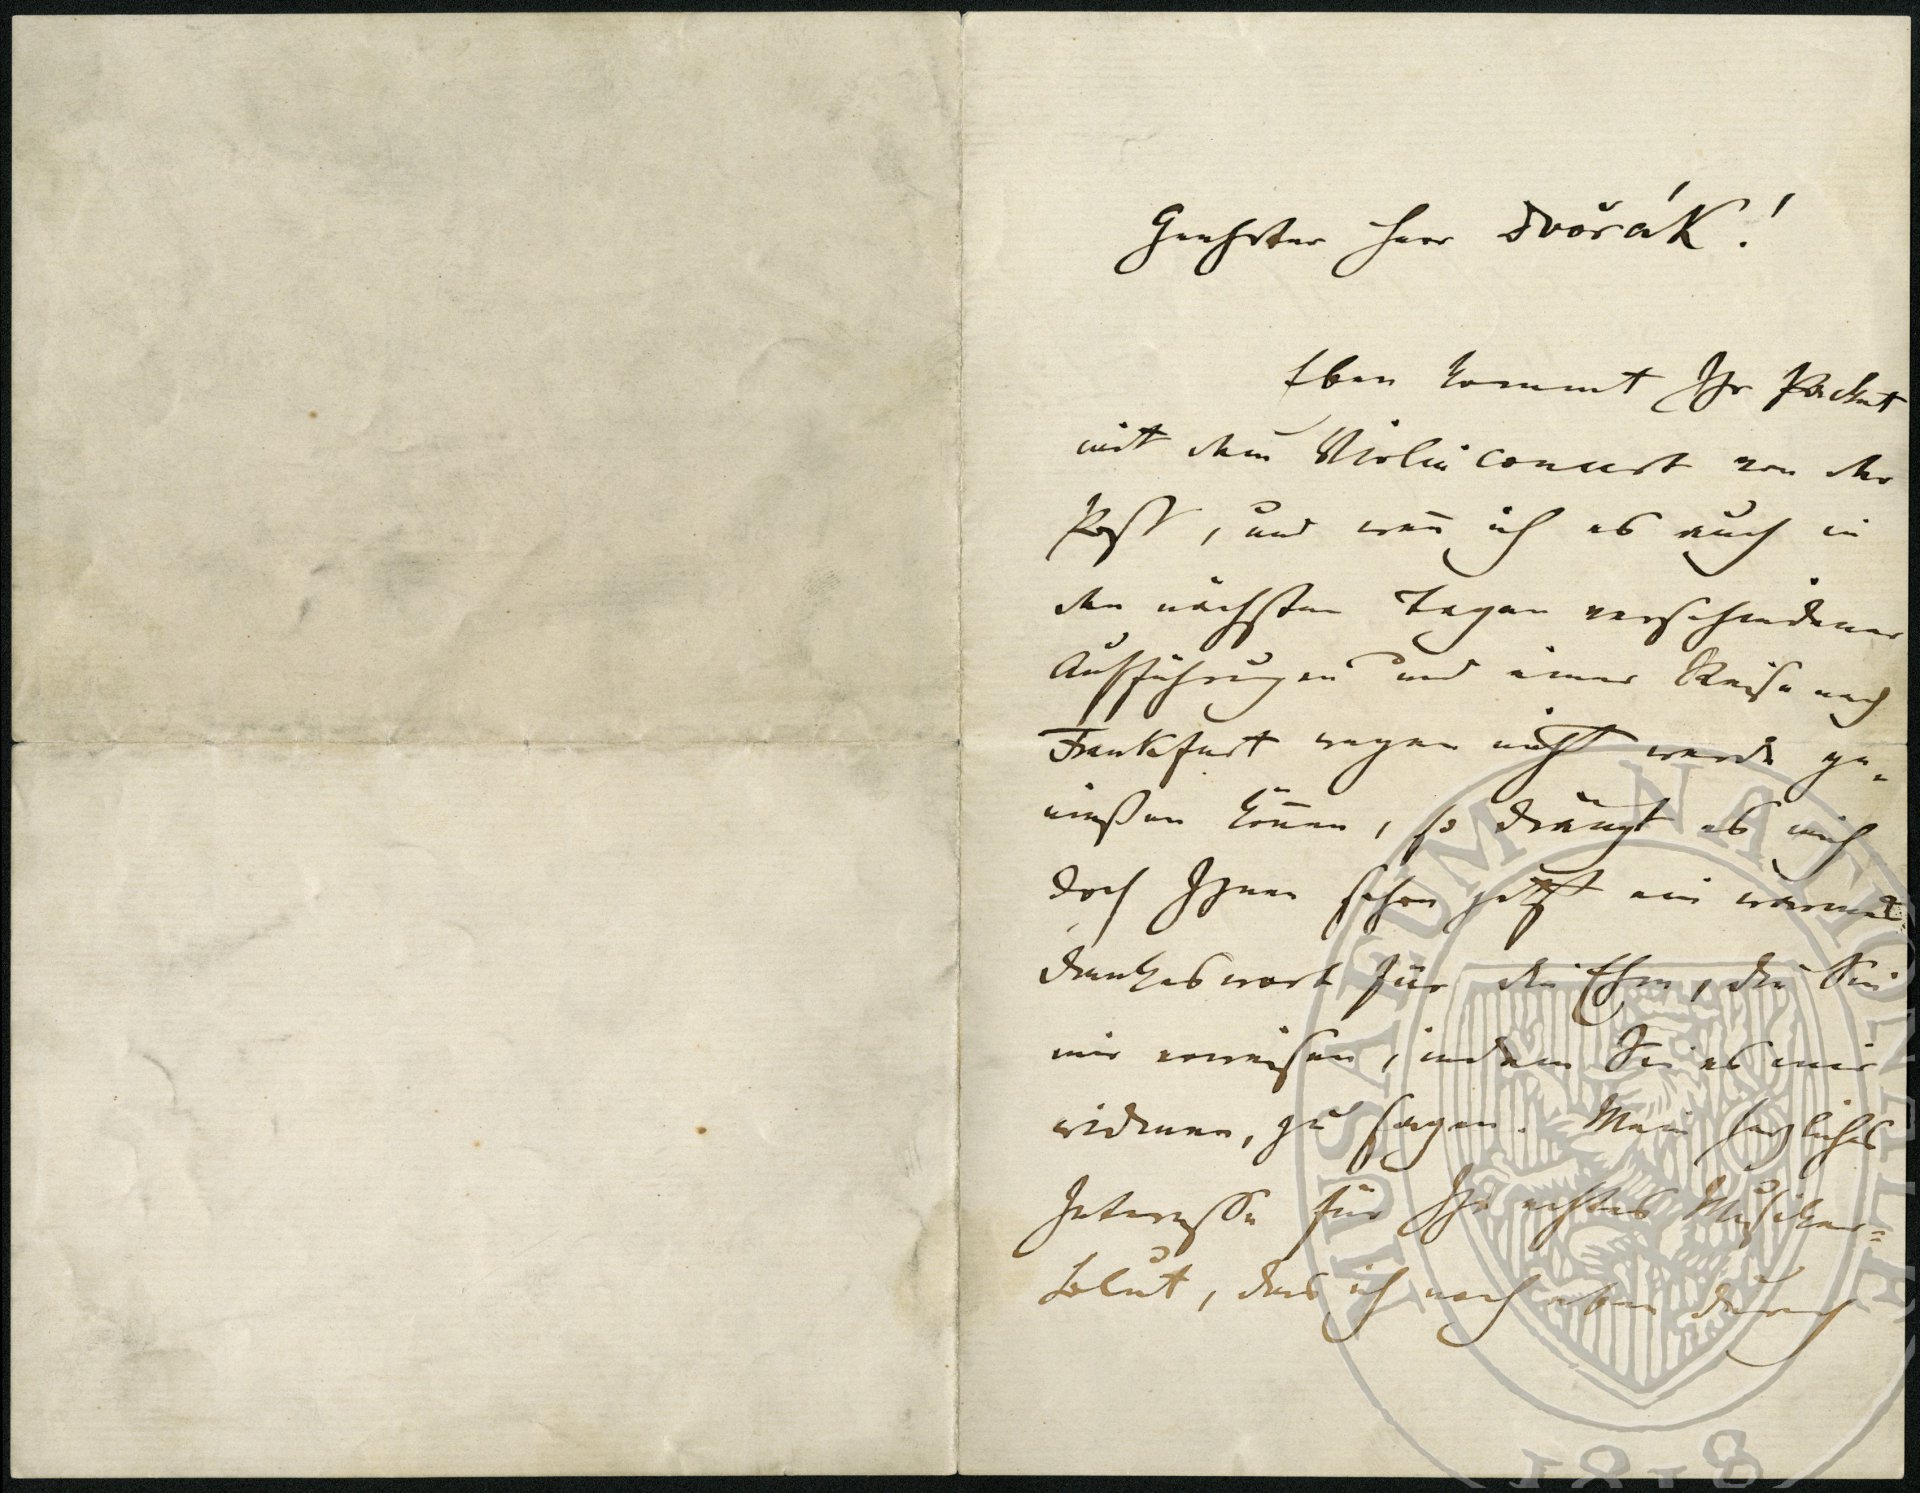 Geehrter Herr Dvořák!
Eben kommt Ihr Packet
mit dem Violinconcert von der
Post, und weñ ich es auch in
den nächsten Tagen verschiedener
Aufführungen und einer Reise nach
Frankfurt wegen nicht werde ge-
nießen köñen, so drängt es mich
doch Ihnen schon jetzt ein warmes
Dankeswort für die Ehre, die Sie
mir erweisen, indem Sie es mir
widmen, zu sagen. Mein herzliches
Interesse für Ihr echtes Musiker=
blut, das ich noch eben durch
MUSAEUM NATIONALE
1818